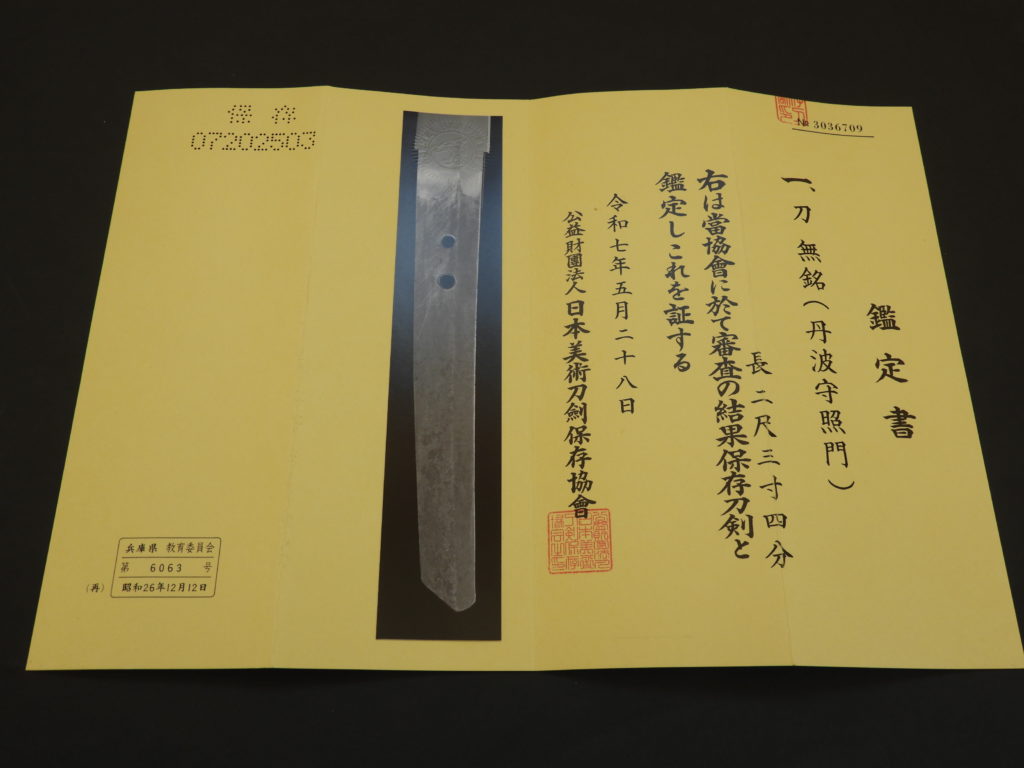 № 3036709
鑑定書
一、刀 無銘(丹波守照門)
長二尺三寸四分
右は當協會に於て審査の結果保存刀剣と
鑑定しこれを証する
令和七年五月二十八日
公益財團法人日本美術刀劍保存協會
保存
07202503
兵庫県 教育委員会
第 6063 号
(再) 昭和26年12月12日